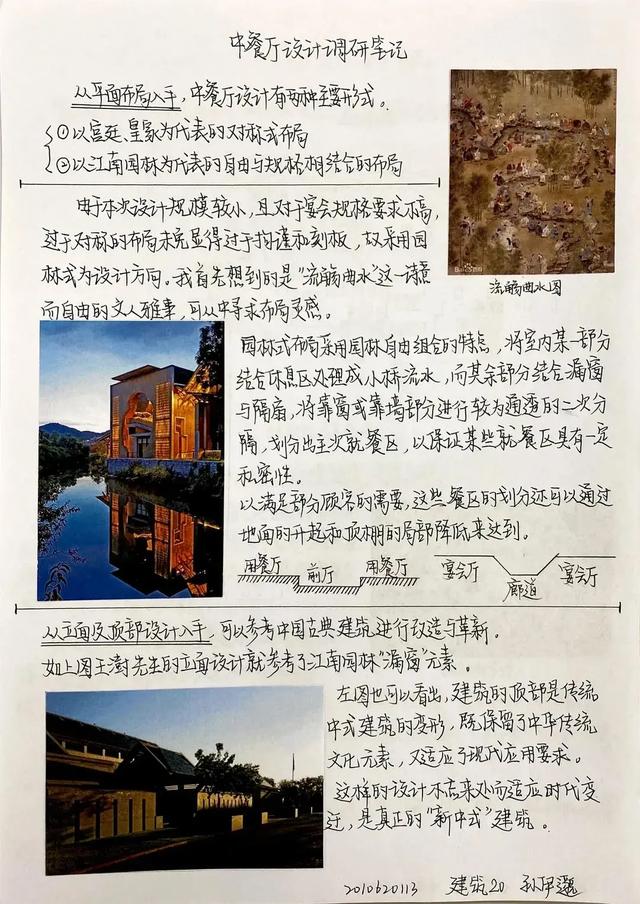 中餐厅设计调研笔记
从平面布局入手，中餐厅设计有两种主要形式。
①以宫廷、皇家为代表的对称式布局
②以江南园林为代表的自由与规格相结合的布局
由于本次设计规模较小，且对于宴会规格要求不高，
过于对称的布局未免显得过于拘谨和刻板，故采用园
林式为设计方向。我首先想到的是“流觞曲水”这一诗意
而自由的文人雅事，可从中寻求布局灵感。
Bai
流觞曲水图
园林式布局采用园林自由组合的特点，将室内某一部分
结合休息区处理成小桥流水，而其余部分结合漏窗
与隔扇，将靠窗或靠墙部分进行较为通透的二次分
隔，划分出主次就餐区，以保证某些就餐区具有一定
私密性。
以满足部分顾客的需要，这些餐区的划分还可以通过
地面的升起和顶棚的局部降低来达到。
用餐厅 前厅 用餐厅 宴会厅 廊道 宴会厅
从立面及顶部设计入手，可以参考中国古典建筑进行改造与革新。
如上图王澍先生的立面设计就参考了江南园林“漏窗”元素。
左图也可以看出，建筑的顶部是传统
中式建筑的变形，既保留了中华传统
文化元素，又适应了现代应用要求。
这样的设计不忘来处而适应时代变
迁，是真正的“新中式”建筑。
2010620113 建筑20 孙伊